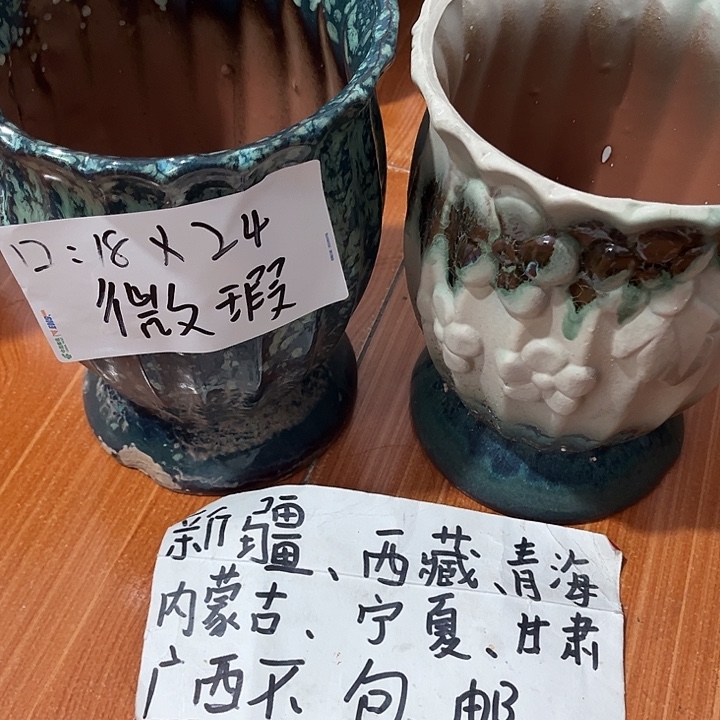 口：18×24
微瑕
新疆、西藏、青海
内蒙古、宁夏、甘肃
广西不包邮